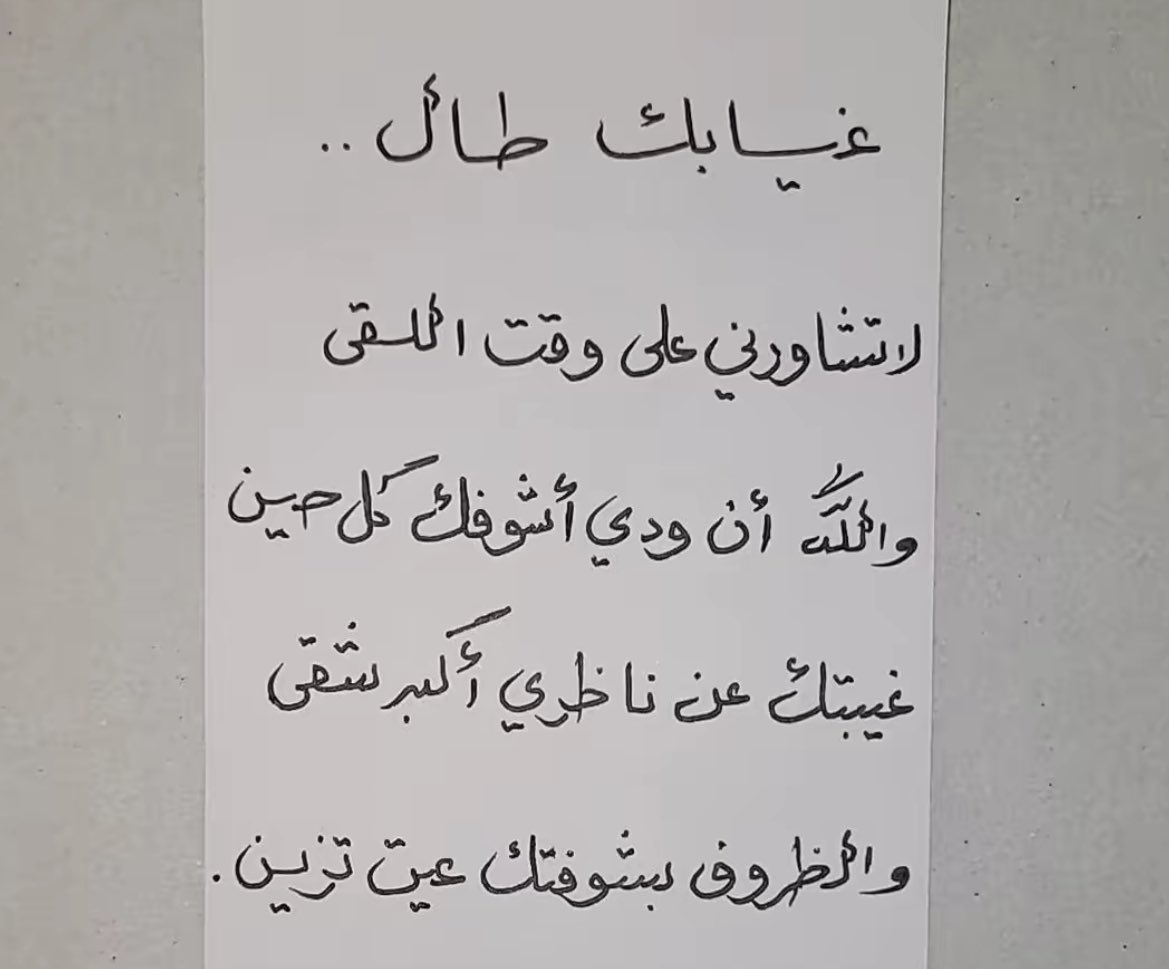 غيابك طال ..
لاتشاورني على وقت اللقى
والله أن ودي أشوفك كل حين
غيبتك عن ناظري أكبر شقى
والظروف بشوفتك عيت تزين .